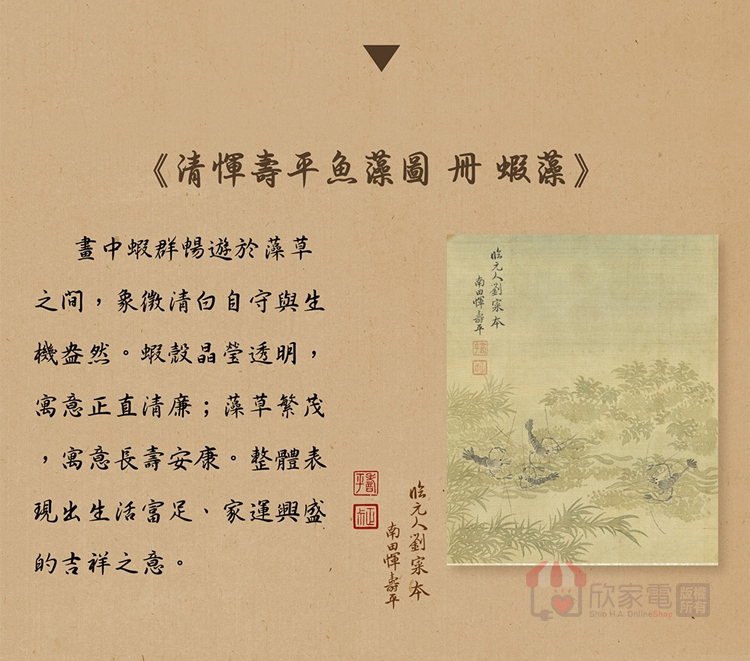 《清惲壽平魚藻圖 冊 蝦藻》
畫中蝦群暢遊於藻草
之間，象徵清白自守與生
機盎然。蝦殼晶瑩透明，
寓意正直清廉；藻草繁茂
，寓意長壽安康。整體表
現出生活富足、家運興盛
的吉祥之意。
臨元人劉寀本
南田惲壽平
臨元人劉寀本
南田惲壽平
欣家電
版權所有
Shin H.A. OnlineShop